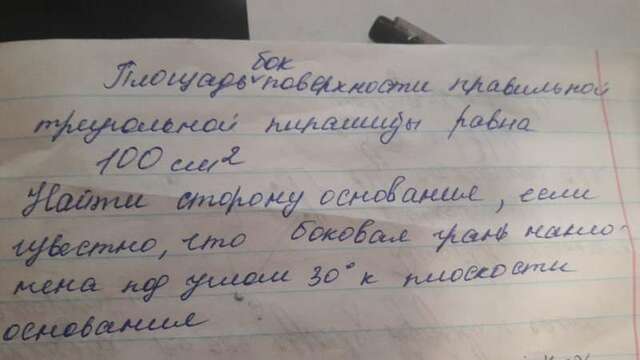 бок
Площадь поверхности правильной
треугольной пирамиды равна
100 см²
Найти сторону основания, если
известно, что боковая грань накло-
нена под углом 30° к плоскости
основания